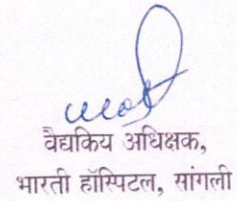 वैद्यकिय अधिक्षक,
भारती हॉस्पिटल, सांगली